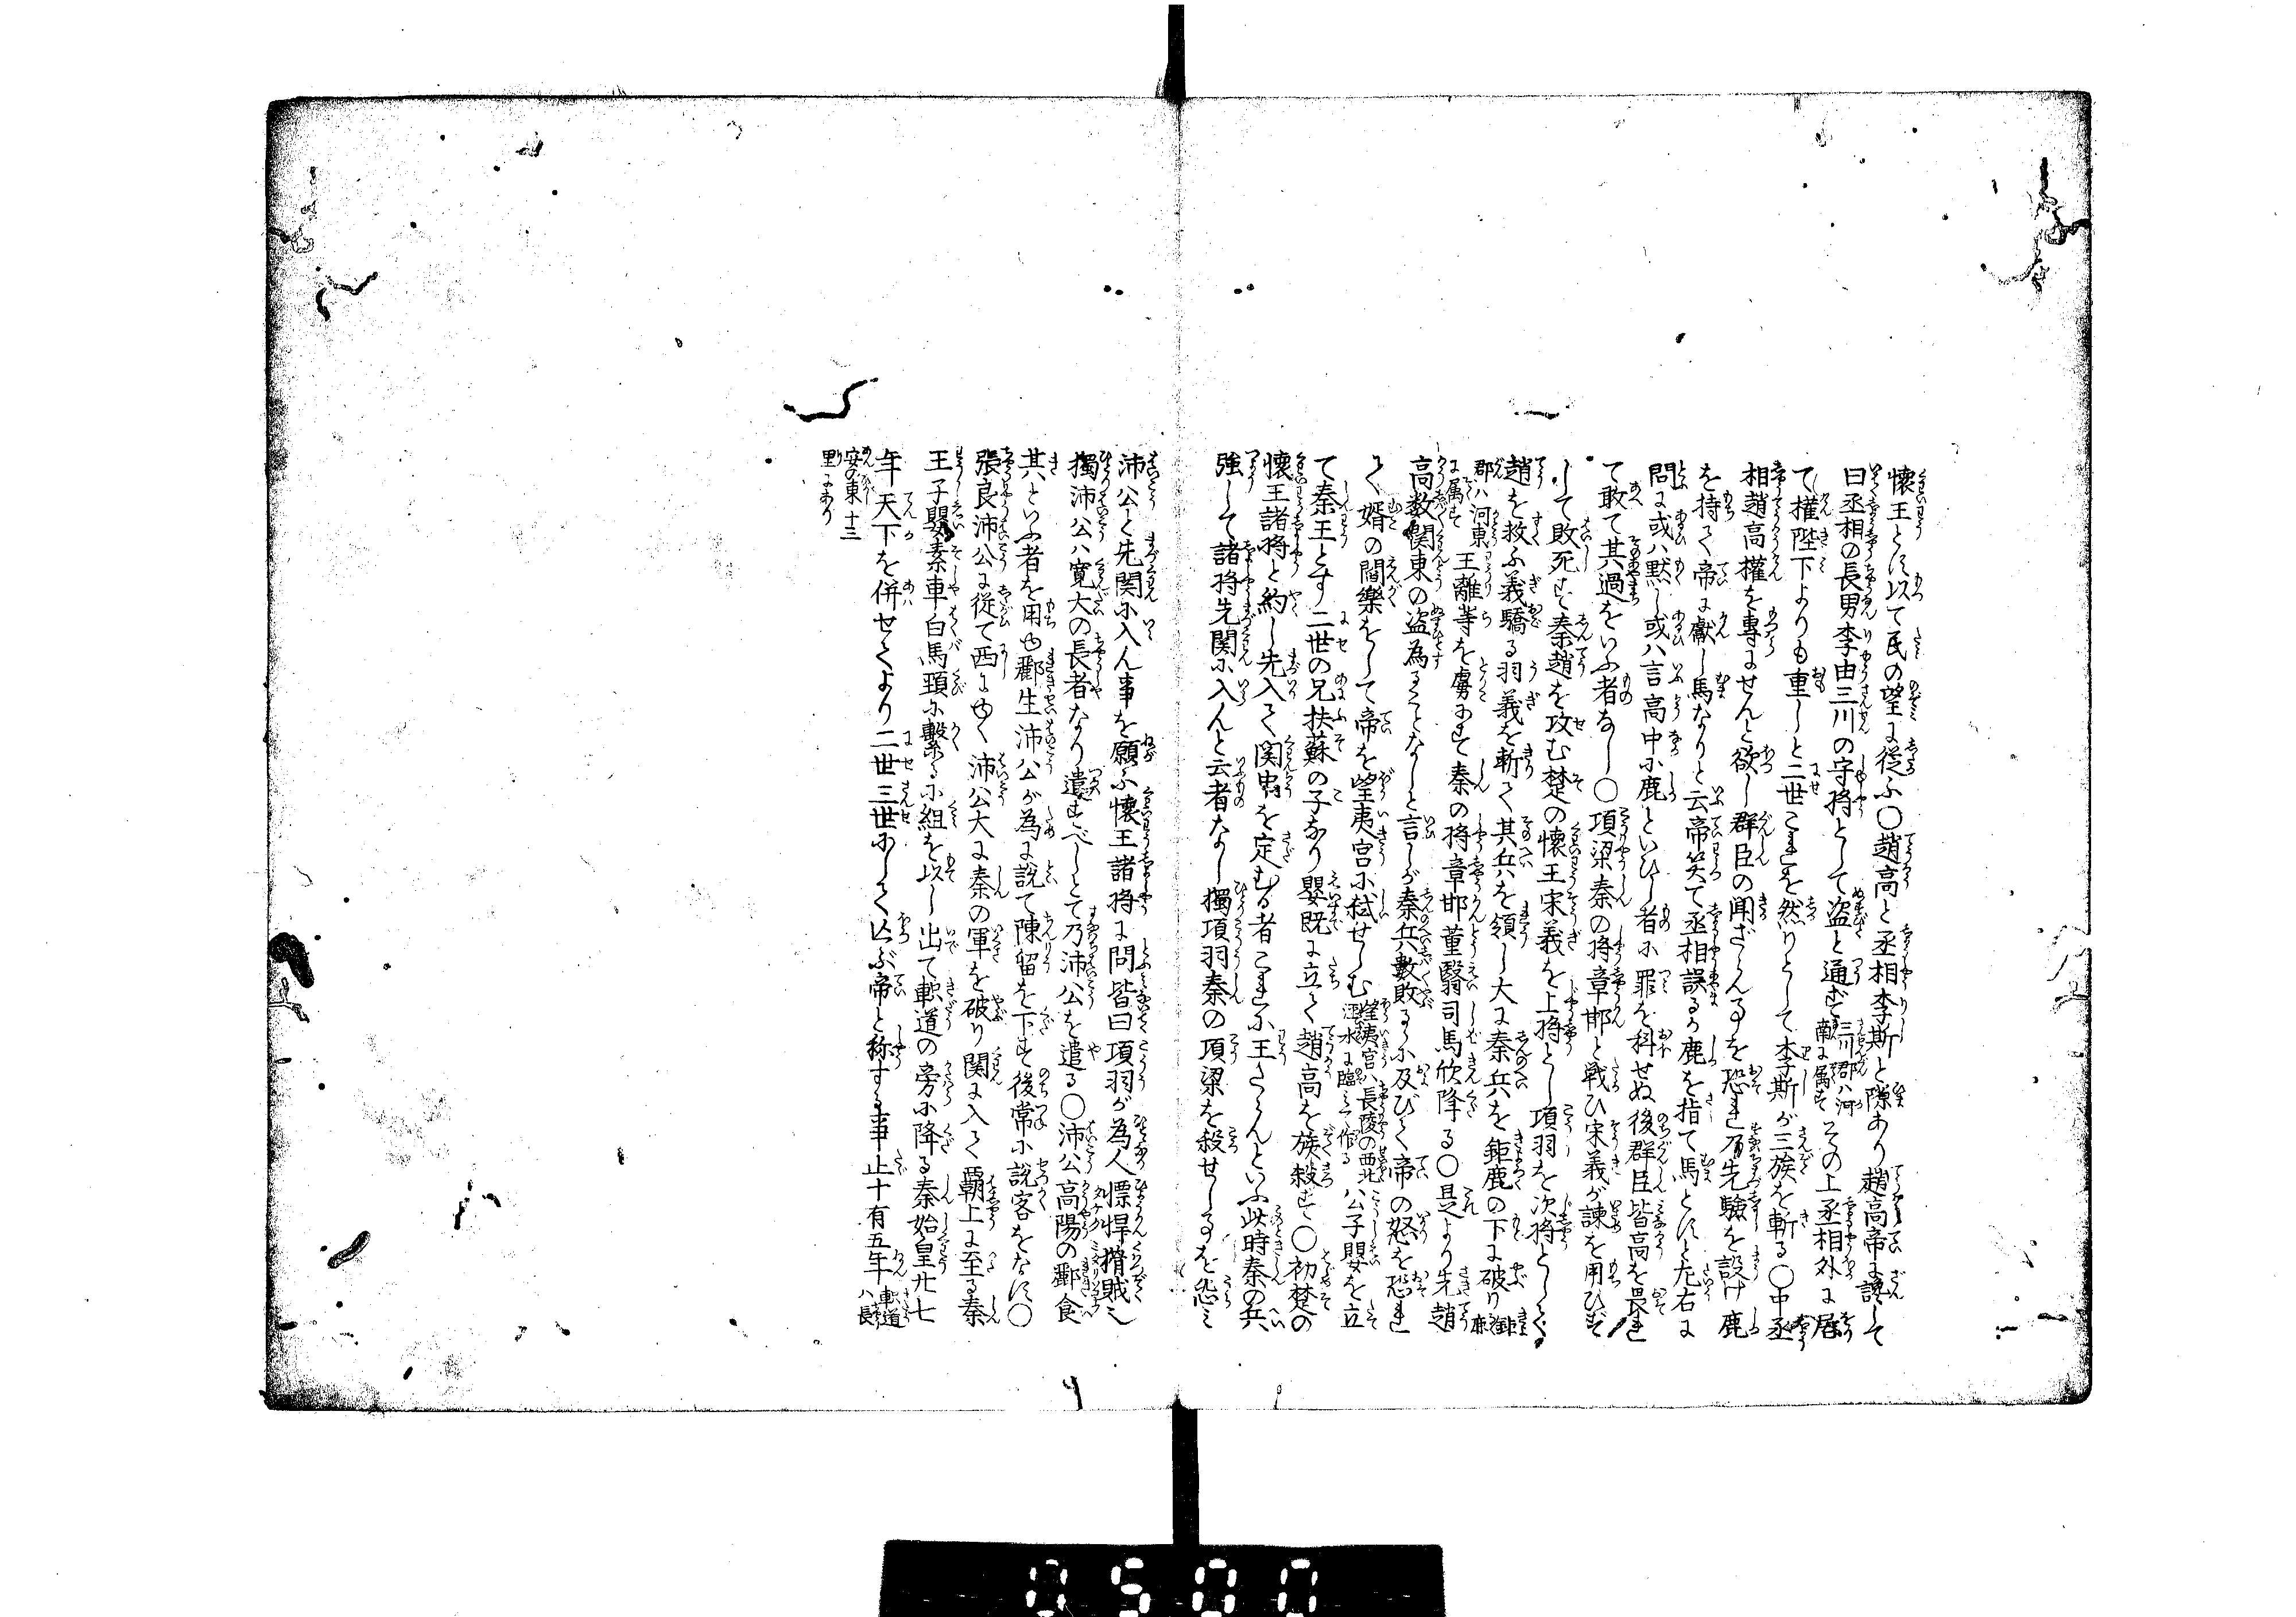 懐王とす以て民の望に従ふ〇趙高と丞相李斯と隙あり趙高帝に譖して
曰丞相の長男李由三川の守将として盗と通ず三川郡ハ河南に属すその上丞相外に居
て權陛下よりも重しと二世これを然りとして李斯が三族を斬る〇中丞
相趙高權を專にせんと欲し群臣の聞ざらん事を恐れ乃先驗を設け鹿
を持て帝に獻し馬なりと云帝笑て丞相誤るか鹿を指て馬とすと左右に
問に或ハ黙し或ハ言高中に鹿といひし者に罪を科せぬ後群臣皆高を畏れ
て敢て其過をいふ者なし〇項梁秦の将章邯と戦ひ宋義が諫を用ひず
して敗死す秦趙を攻む楚の懐王宋義を上将とし項羽を次将として
趙を救ふ義驕る羽義を斬て其兵を領し大に秦兵を鉅鹿の下に破り鉅鹿
郡ハ河東に属す王離等を虜にす秦の将章邯董翳司馬欣降る〇是より先趙
高数関東の盗為ることなしと言しが秦兵数敗るに及びて帝の怒を恐れ
て婿の閻樂をして帝を望夷宮に弑せしむ望夷宮ハ長陵の西北涇水に臨て作る公子嬰を立
て秦王とす二世の兄扶蘇の子なり嬰既に立て趙高を族殺す〇初楚の
懐王諸将と約し先入て関中を定むる者これに王たらんといふ此時秦の兵
強して諸将先関に入んと云者なし獨項羽秦の項梁を殺せし事を怨ミ
沛公と先関に入ん事を願ふ懐王諸将に問皆曰項羽が為人慓悍猾賊也
獨沛公ハ寛大の長者なり遣すべしとて乃沛公を遣る〇沛公高陽の酈食
其といふ者を用ゆ酈生沛公が為に説て陳留を下す後常に説客をなす〇
張良沛公に従て西にゆく沛公大に秦の軍を破り関に入て覇上に至る秦
王子嬰素車白馬頸に繋るに組を以し出て軹道の旁に降る秦始皇廿七
年天下を併せてより二世三世にして亡ぶ帝と称する事止十有五年軹道ハ長
安の東十三里にあり